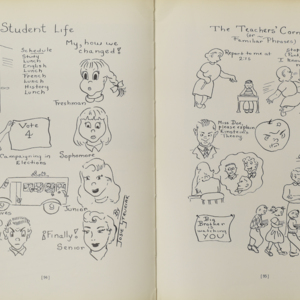 Student Life
Schedule
Study
Lunch
English
Lunch
French
Lunch
History
Lunch
My, how we
changed!
Freshman
Vote
4
Campaigning in
Elections
Sophomore
Junior
Finally!
Senior
The Teachers' Corner
or
Familiar Phrases
Report to me at
2:10
Miss Doe,
please explain
Einstein's
Theory
Big
Brother
is
watching
YOU